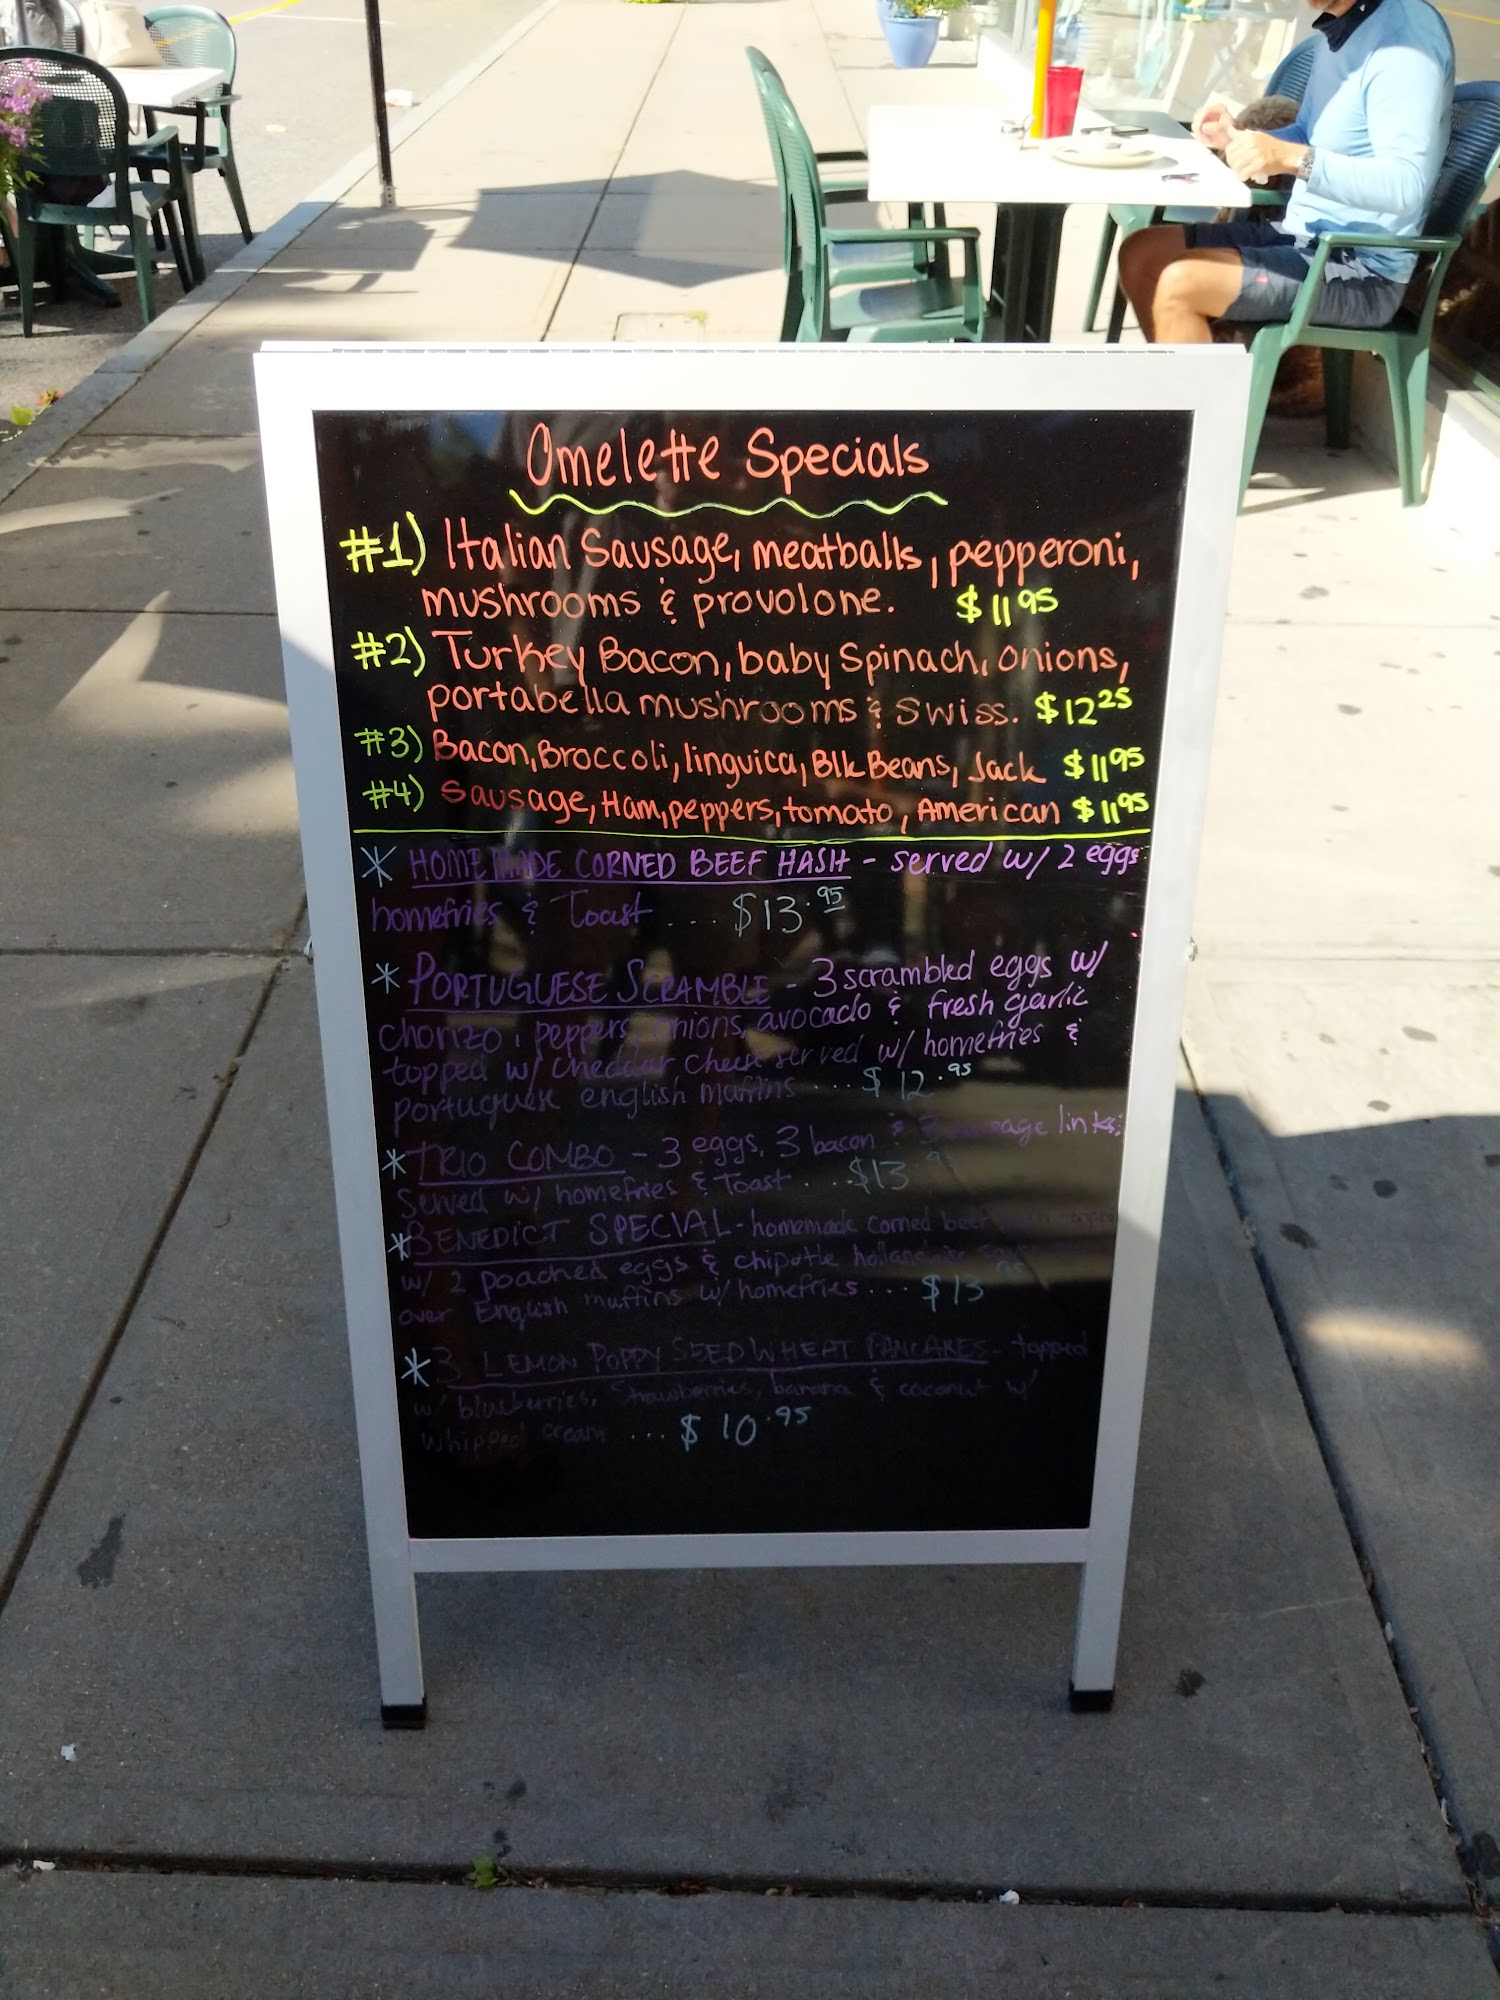 Omelette Specials
#1) Italian Sausage, meatballs, pepperoni,
mushrooms & provolone. $11 95
#2) Turkey Bacon, baby Spinach, onions,
portabella mushrooms & Swiss. $12 25
#3) Bacon, Broccoli, linguica, Blk Beans, Jack $11 95
#4) Sausage, Ham, peppers, tomato, American $11 95
* HOMEMADE CORNED BEEF HASH - served w/ 2 eggs
homefries & Toast ... $13.95
* PORTUGUESE SCRAMBLE - 3 scrambled eggs w/
chorizo, peppers, onions, avocado & fresh garlic
topped w/ cheddar cheese served w/ homefries &
portuguese english muffins ... $12.95
* TRIO COMBO - 3 eggs, 3 bacon & 3 sausage links;
Served w/ homefries & Toast ... $13
* BENEDICT SPECIAL - homemade corned beef
w/ 2 poached eggs & chipotle hollandaise
over English muffins w/ homefries ... $13
* 3 LEMON POPPY SEED WHEAT PANCAKES - topped
w/ blueberries, Strawberries, banana & coconut w/
whipped cream ... $10.95